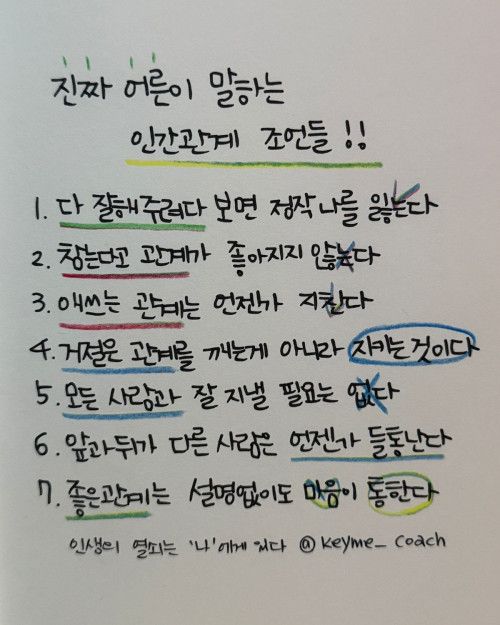 진짜 어른이 말하는
인간관계 조언들 !!
1. 다 잘해주려다 보면 정작 나를 잃는다
2. 참는다고 관계가 좋아지지 않는다
3. 애쓰는 관계는 언젠가 지친다
4. 거절은 관계를 깨는게 아니라 지키는것이다
5. 모든 사람과 잘 지낼 필요는 없다
6. 앞과뒤가 다른 사람은 언젠가 들통난다
7. 좋은관계는 설명없이도 마음이 통한다
인생의 열쇠는 '나'에게 있다 @keyme_coach